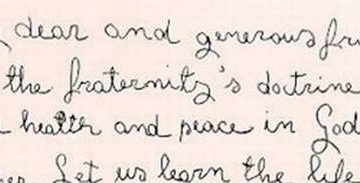 dear and generous fr
the fraternity's doctrine
health and peace in God
Let us learn the life